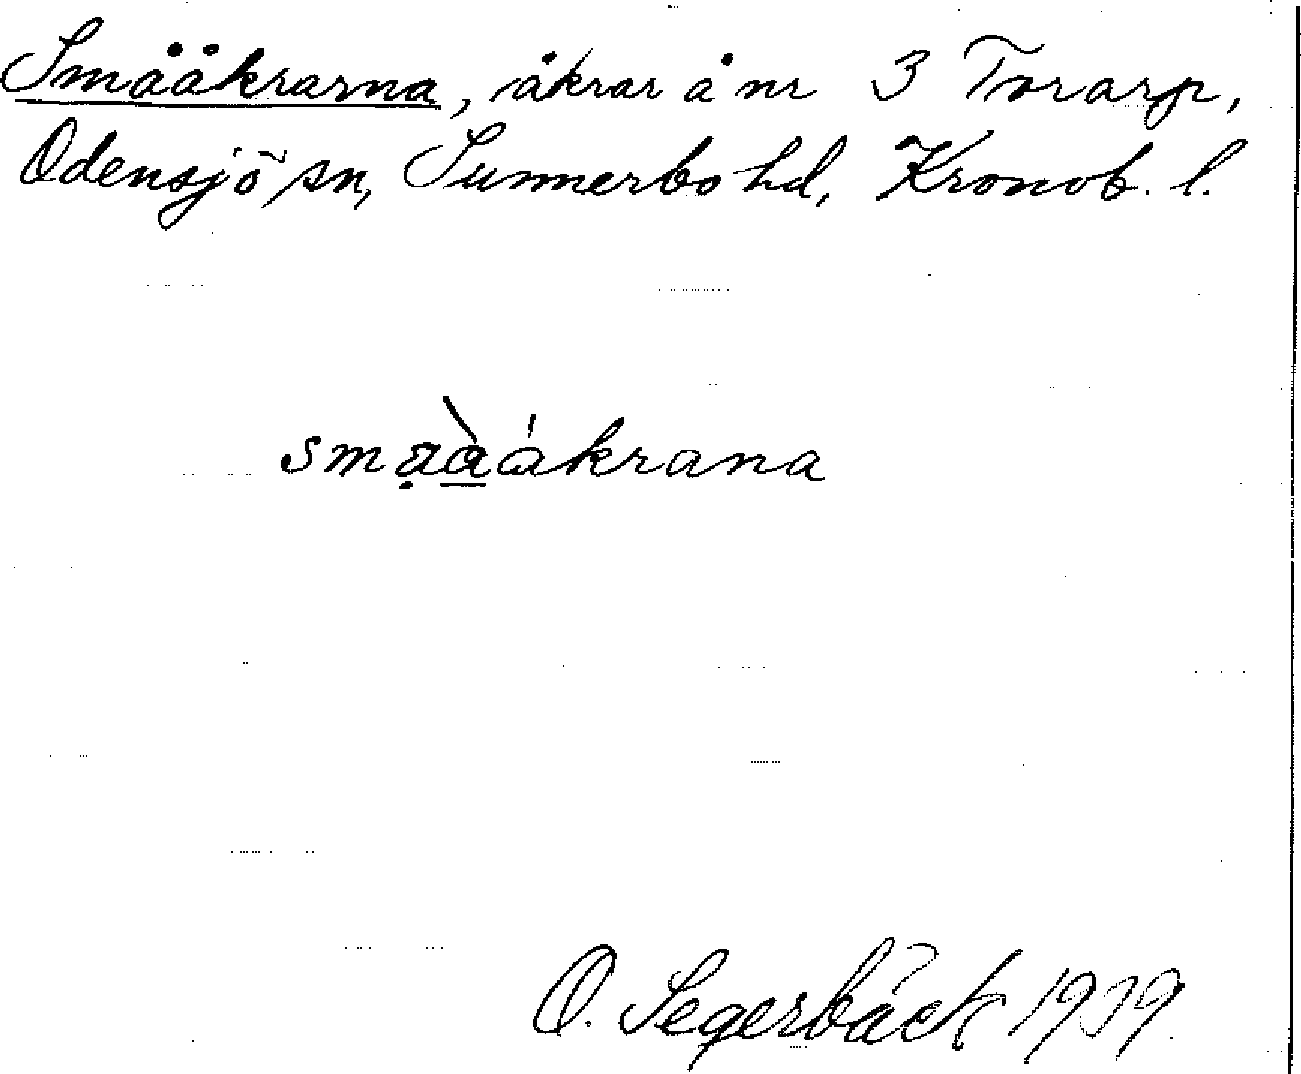 Småäkrarna, åkrar å nr 3 Torarp,
Odensjö sn, Sunnerbo hd, Kronob. l.
smaàákrana
O. Segerbäck 1939